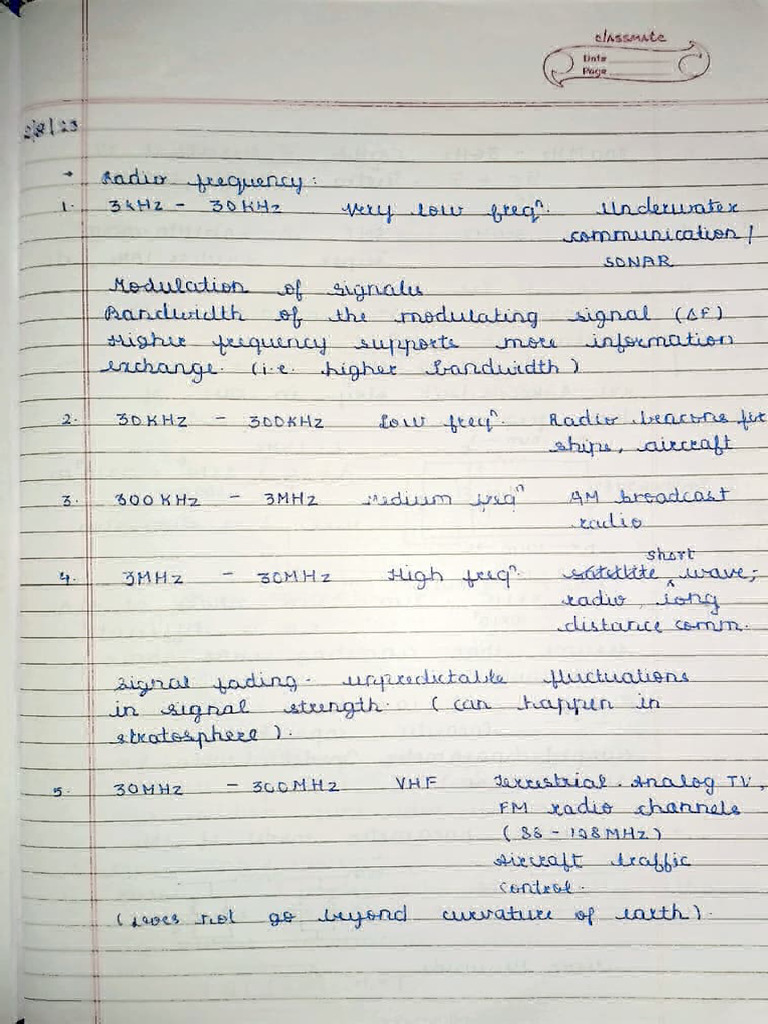 classmate
Date
Page
2/8/23
→ Radio frequency:
1. 3KHz - 30KHz Very low freqⁿ. Underwater
communication/
SONAR
Modulation of signals
Bandwidth of the modulating signal (ΔF)
Higher frequency supports more information
exchange. (i.e. higher bandwidth)
2. 30KHz - 300KHz Low freqⁿ. Radio beacons for
ships, aircraft
3. 300KHz - 3MHz Medium freqⁿ AM broadcast
radio
4. 3MHz - 30MHz High freqⁿ. short wave;
radio, long
distance comm.
Signal fading - unpredictable fluctuations
in signal strength. (can happen in
stratosphere).
5. 30MHz - 300MHz VHF Terrestrial Analog TV,
FM radio channels
(88-108MHz)
Aircraft traffic
control.
(Does not go beyond curvature of earth).